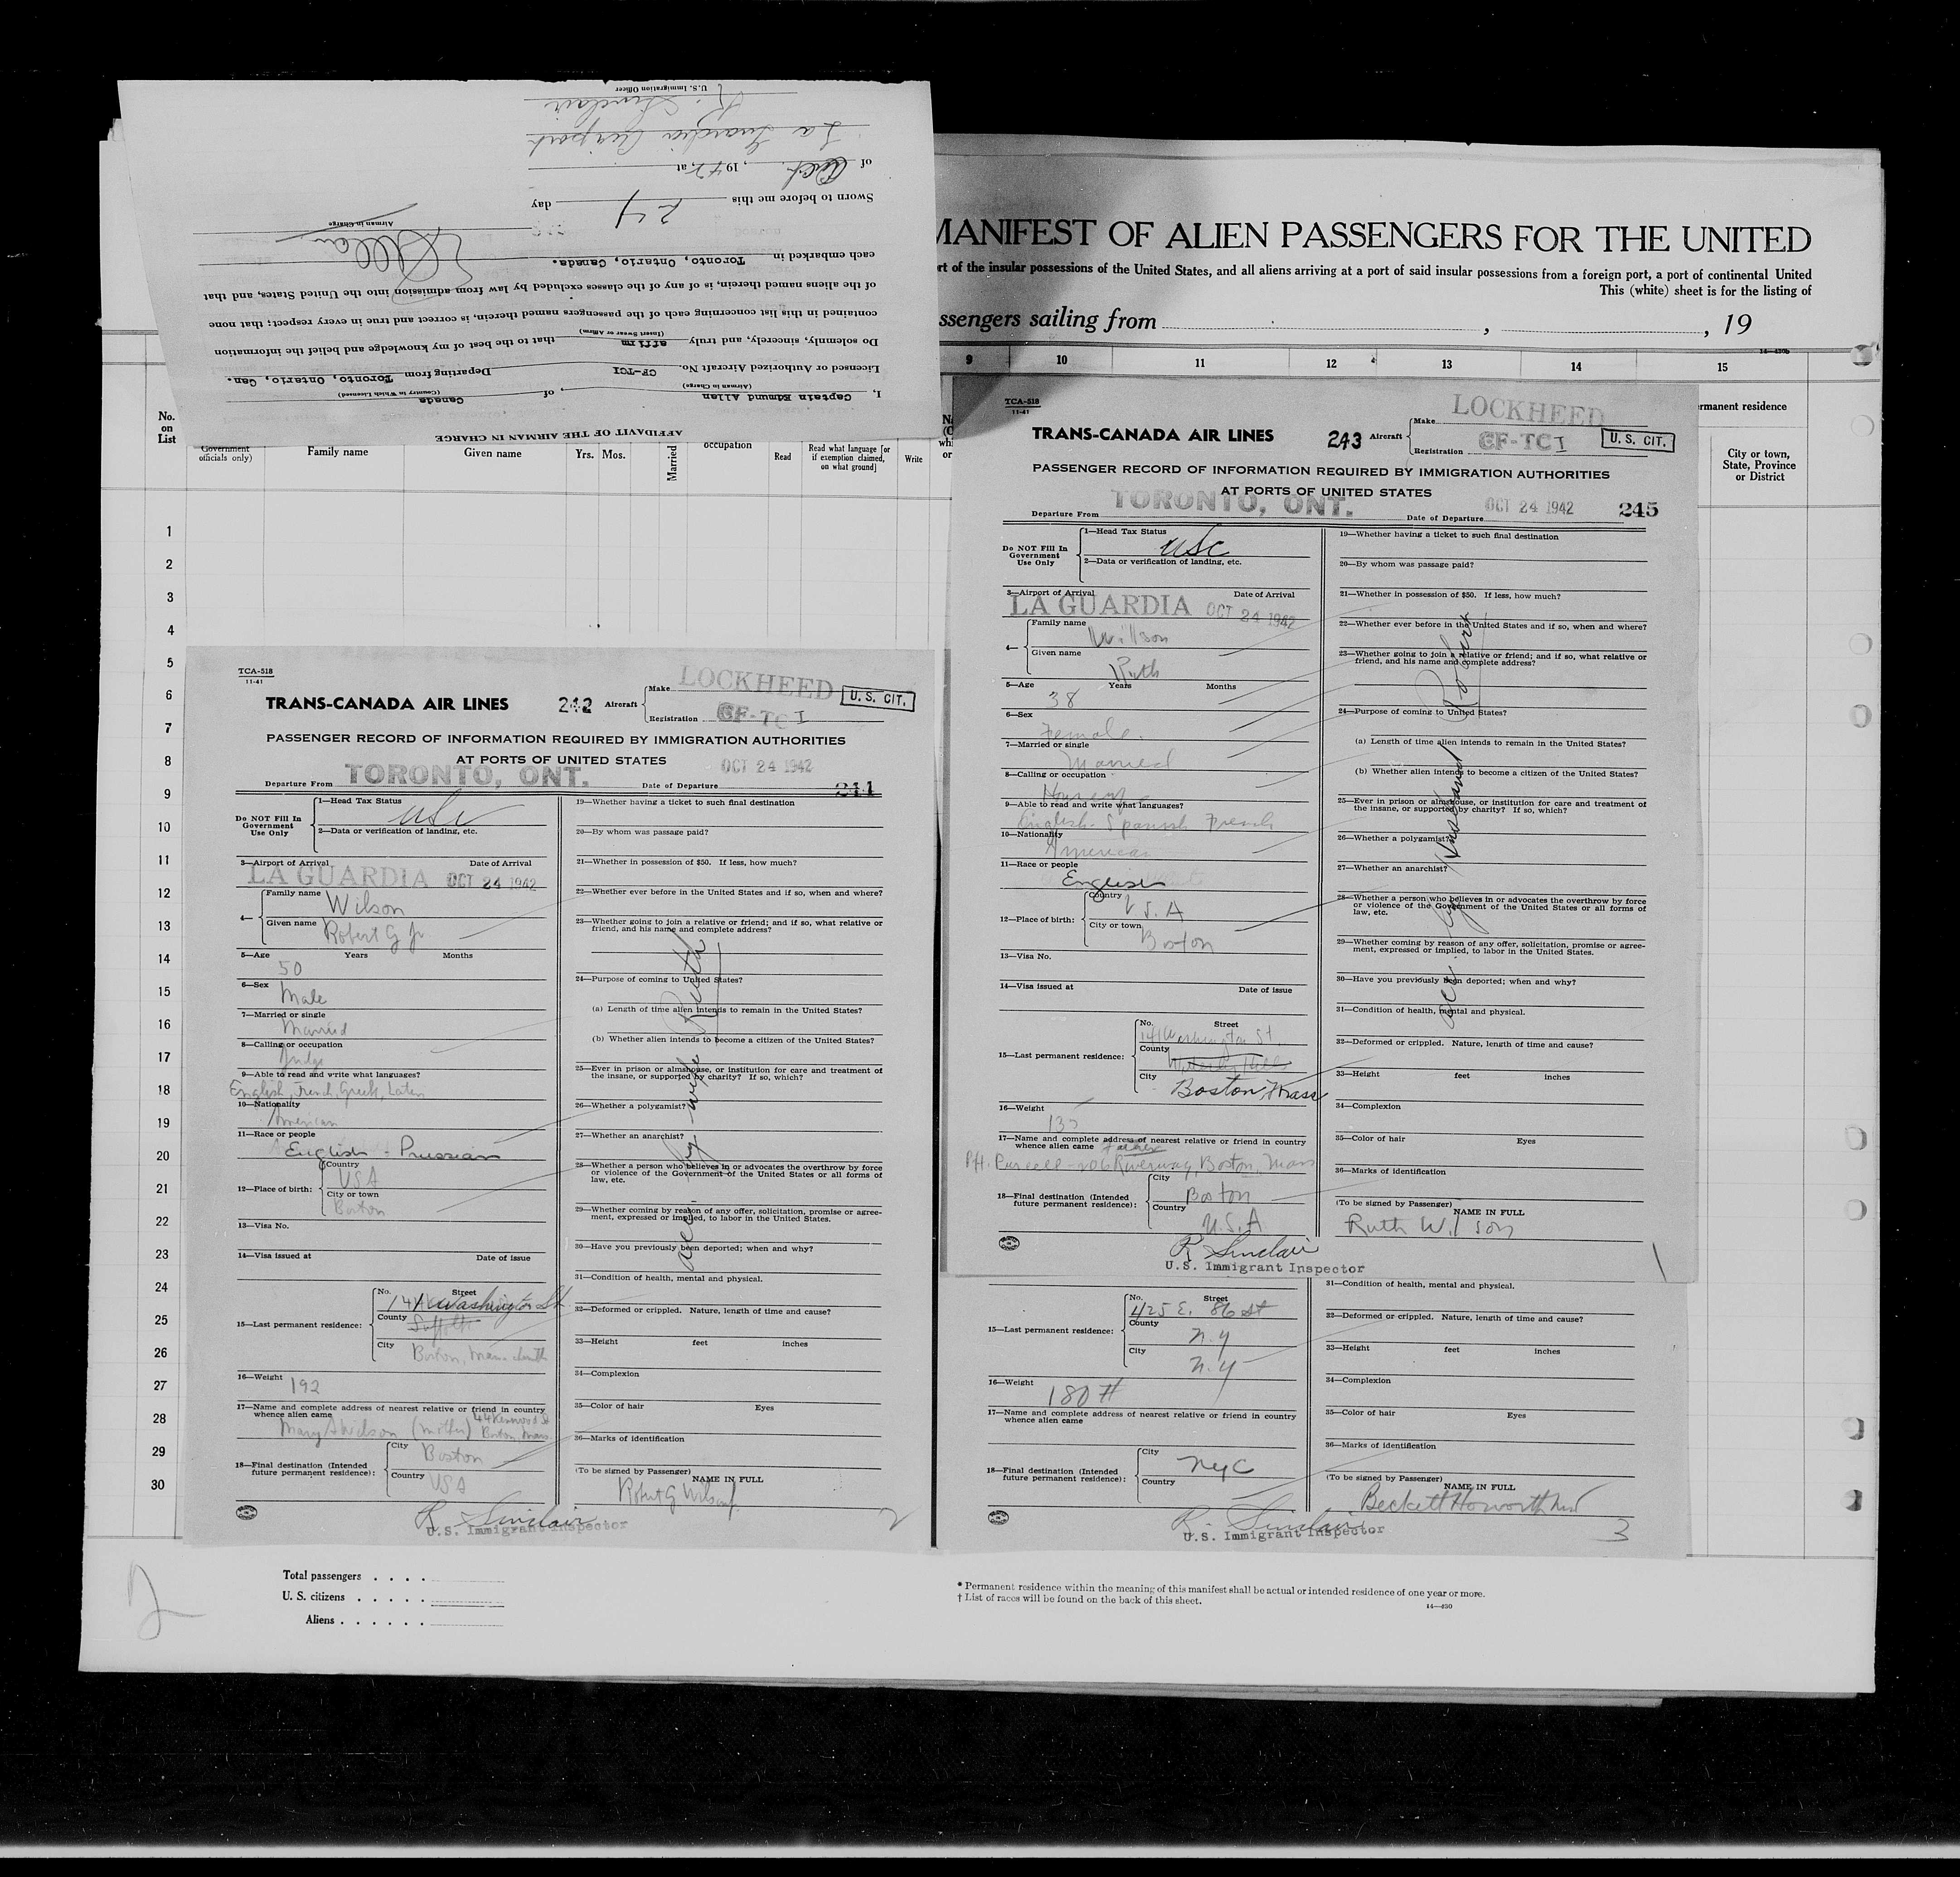 AFFIDAVIT OF THE AIRMAN IN CHARGE
I, Captain Edmund Allan, of Canada
(Airman in Charge) (Country in Which Licensed)
Licensed or Authorized Aircraft No. CF-TCI Departing from Toronto, Ontario, Can.
Do solemnly, sincerely, and truly affirm that to the best of my knowledge and belief the information
(Insert Swear or Affirm)
contained in this list concerning each of the passengers named therein, is correct and true in every respect; that none
of the aliens named therein, is of any of the classes excluded by law from admission into the United States, and that
each embarked in Toronto, Ontario, Canada.
E Allan
Airman in Charge
Sworn to before me this 24 day
of Oct. , 1942, at
La Guardia Airport
R. Sinclair
U.S. Immigration Officer
MANIFEST OF ALIEN PASSENGERS FOR THE UNITED
rt of the insular possessions of the United States, and all aliens arriving at a port of said insular possessions from a foreign port, a port of continental United
This (white) sheet is for the listing of
ssengers sailing from , , 19
9 10 11 12 13 14 15
rmanent residence
City or town,
State, Province
or District
No.
on
List
Government
officials only)
Family name
Given name
Yrs. Mos.
Married
occupation
Read
Read what language [or
if exemption claimed,
on what ground]
Write
1
2
3
4
5
6
7
8
9
10
11
12
13
14
15
16
17
18
19
20
21
22
23
24
25
26
27
28
29
30
TCA-518
11-41
TRANS-CANADA AIR LINES 242 Aircraft
Make LOCKHEED
Registration CF-TCI
U. S. CIT.
PASSENGER RECORD OF INFORMATION REQUIRED BY IMMIGRATION AUTHORITIES
AT PORTS OF UNITED STATES
Departure From TORONTO, ONT. Date of Departure OCT 24 1942 244
Do NOT Fill In
Government
Use Only
1—Head Tax Status
USC
2—Data or verification of landing, etc.
3—Airport of Arrival Date of Arrival
LA GUARDIA OCT 24 1942
4—
Family name Wilson
Given name Robert G Jr
5—Age Years Months
50
6—Sex
Male
7—Married or single
Married
8—Calling or occupation
Judge
9—Able to read and write what languages?
English, French, Greek, Latin
10—Nationality
American
11—Race or people
English - Prussian
12—Place of birth:
Country
USA
City or town
Boston
13—Visa No.
14—Visa issued at Date of issue
15—Last permanent residence:
No. Street
141 Washington St
County
Suffolk
City
Boston, Massachusetts
16—Weight 192
17—Name and complete address of nearest relative or friend in country
whence alien came 44 Kenwood St
Mary A Wilson (mother) Boston, Mass.
18—Final destination (Intended
future permanent residence):
City
Boston
Country
USA
R. Sinclair
U.S. Immigrant Inspector
19—Whether having a ticket to such final destination
20—By whom was passage paid?
21—Whether in possession of $50. If less, how much?
22—Whether ever before in the United States and if so, when and where?
23—Whether going to join a relative or friend; and if so, what relative or
friend, and his name and complete address?
24—Purpose of coming to United States?
(a) Length of time alien intends to remain in the United States?
(b) Whether alien intends to become a citizen of the United States?
25—Ever in prison or almshouse, or institution for care and treatment of
the insane, or supported by charity? If so, which?
26—Whether a polygamist?
27—Whether an anarchist?
28—Whether a person who believes in or advocates the overthrow by force
or violence of the Government of the United States or all forms of
law, etc.
29—Whether coming by reason of any offer, solicitation, promise or agree-
ment, expressed or implied, to labor in the United States.
30—Have you previously been deported; when and why?
31—Condition of health, mental and physical.
32—Deformed or crippled. Nature, length of time and cause?
33—Height feet inches
34—Complexion
35—Color of hair Eyes
36—Marks of identification
(To be signed by Passenger)
NAME IN FULL
Robert G Wilson Jr.
acc by wife Ruth
2
TCA-518
11-41
TRANS-CANADA AIR LINES 243 Aircraft
Make LOCKHEED
Registration CF-TCI
U. S. CIT.
PASSENGER RECORD OF INFORMATION REQUIRED BY IMMIGRATION AUTHORITIES
AT PORTS OF UNITED STATES
Departure From TORONTO, ONT. Date of Departure OCT 24 1942 245
Do NOT Fill In
Government
Use Only
1—Head Tax Status
USC
2—Data or verification of landing, etc.
3—Airport of Arrival Date of Arrival
LA GUARDIA OCT 24 1942
4—
Family name
Willson
Given name
Ruth
5—Age Years Months
38
6—Sex
Female.
7—Married or single
Married
8—Calling or occupation
9—Able to read and write what languages?
English - Spanish French
10—Nationality
American
11—Race or people
English
12—Place of birth:
Country
U.S.A
City or town
Boston
13—Visa No.
14—Visa issued at Date of issue
15—Last permanent residence:
No. Street
141 Washington St.
County
City
Boston, Mass
16—Weight
17—Name and complete address of nearest relative or friend in country
whence alien came Father
P.H. Purcell - 206 Riverway, Boston, Mass
18—Final destination (Intended
future permanent residence):
City
Boston
Country
U.S.A.
R Sinclair
U.S. Immigrant Inspector
19—Whether having a ticket to such final destination
20—By whom was passage paid?
21—Whether in possession of $50. If less, how much?
22—Whether ever before in the United States and if so, when and where?
23—Whether going to join a relative or friend; and if so, what relative or
friend, and his name and complete address?
24—Purpose of coming to United States?
(a) Length of time alien intends to remain in the United States?
(b) Whether alien intends to become a citizen of the United States?
25—Ever in prison or almshouse, or institution for care and treatment of
the insane, or supported by charity? If so, which?
26—Whether a polygamist?
27—Whether an anarchist?
28—Whether a person who believes in or advocates the overthrow by force
or violence of the Government of the United States or all forms of
law, etc.
29—Whether coming by reason of any offer, solicitation, promise or agree-
ment, expressed or implied, to labor in the United States.
30—Have you previously been deported; when and why?
31—Condition of health, mental and physical.
32—Deformed or crippled. Nature, length of time and cause?
33—Height feet inches
34—Complexion
35—Color of hair Eyes
36—Marks of identification
(To be signed by Passenger)
NAME IN FULL
Ruth Wilson
acc. by husband Robert
1
15—Last permanent residence:
No. Street
425 E. 86 St
County
N.Y
City
N.Y
16—Weight
180 #
17—Name and complete address of nearest relative or friend in country
whence alien came
18—Final destination (Intended
future permanent residence):
City
NYC
Country
R. Sinclair
U.S. Immigrant Inspector
31—Condition of health, mental and physical.
32—Deformed or crippled. Nature, length of time and cause?
33—Height feet inches
34—Complexion
35—Color of hair Eyes
36—Marks of identification
(To be signed by Passenger)
NAME IN FULL
Beckett Howorth MD
3
Total passengers . . . .
U. S. citizens . . . . .
Aliens . . . . . .
2
* Permanent residence within the meaning of this manifest shall be actual or intended residence of one year or more.
† List of races will be found on the back of this sheet.
14—430